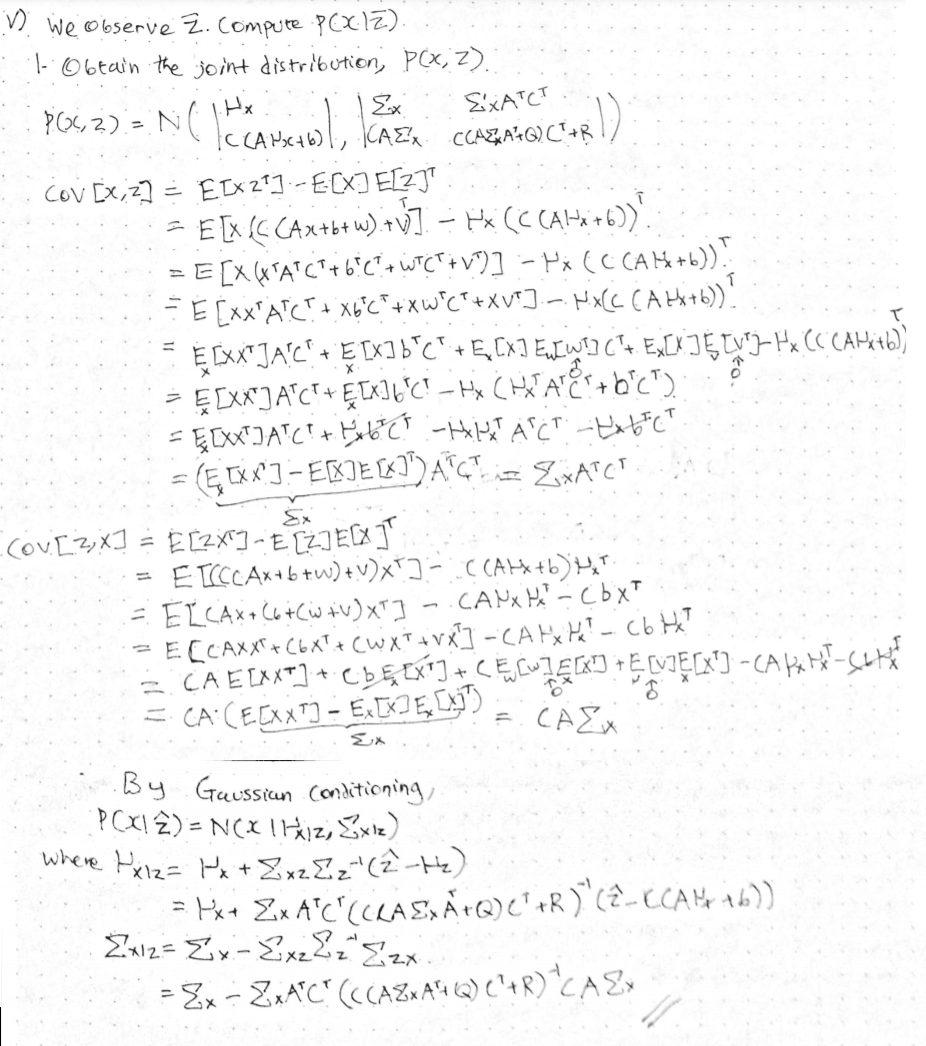 V) We observe Z. Compute P(x|Z̄)
1- Obtain the joint distribution, P(x,z).
P(x,z) = N( | μx C(Aμx+b) |, | Σx ΣxAᵀCᵀ CAΣx C(AΣxAᵀ+Q)Cᵀ+R | )
Cov[x,z] = E[xzᵀ] - E[x]E[z]ᵀ
= E[x(C(Ax+b+w)+v)ᵀ] - μx(C(Aμx+b))ᵀ
= E[x(xᵀAᵀCᵀ+bᵀCᵀ+wᵀCᵀ+vᵀ)] - μx(C(Aμx+b))ᵀ
= E[xxᵀAᵀCᵀ + xbᵀCᵀ+xwᵀCᵀ+xvᵀ] - μx(C(Aμx+b))ᵀ
= Eₓ[xxᵀ]AᵀCᵀ + Eₓ[x]bᵀCᵀ + Eₓ[x]E_w[wᵀ]Cᵀ + Eₓ[x]E_v[vᵀ] - μx(C(Aμx+b))ᵀ
0 0
= Eₓ[xxᵀ]AᵀCᵀ + Eₓ[x]bᵀCᵀ - μx(μxᵀAᵀCᵀ+bᵀCᵀ)
= Eₓ[xxᵀ]AᵀCᵀ + μxbᵀCᵀ - μxμxᵀAᵀCᵀ - μxbᵀCᵀ
= (Eₓ[xxᵀ] - E[x]E[x]ᵀ)AᵀCᵀ = ΣxAᵀCᵀ
Σx
Cov[z,x] = E[zxᵀ] - E[z]E[x]ᵀ
= E[(C(Ax+b+w)+v)xᵀ] - C(Aμx+b)μxᵀ
= E[(CAx+Cb+Cw+v)xᵀ] - CAμxμxᵀ - Cbxᵀ
= E[CAxxᵀ+Cbxᵀ+Cwxᵀ+vxᵀ] - CAμxμxᵀ - Cbμxᵀ
= CAE[xxᵀ] + CbEₓ[xᵀ] + CE_w[w]Eₓ[xᵀ] + E_v[v]Eₓ[xᵀ] - CAμxμxᵀ - Cbμxᵀ
0 0
= CA·(E[xxᵀ] - Eₓ[x]Eₓ[x]ᵀ) = CAΣx
Σx
By Gaussian conditioning,
P(x|ẑ) = N(x|μx|z, Σx|z)
where μx|z = μx + ΣxzΣz⁻¹(ẑ-μz)
= μx + ΣxAᵀCᵀ(C(AΣxAᵀ+Q)Cᵀ+R)⁻¹(ẑ-C(Aμx+b))
Σx|z = Σx - ΣxzΣz⁻¹Σzx
= Σx - ΣxAᵀCᵀ(C(AΣxAᵀ+Q)Cᵀ+R)⁻¹CAΣx //